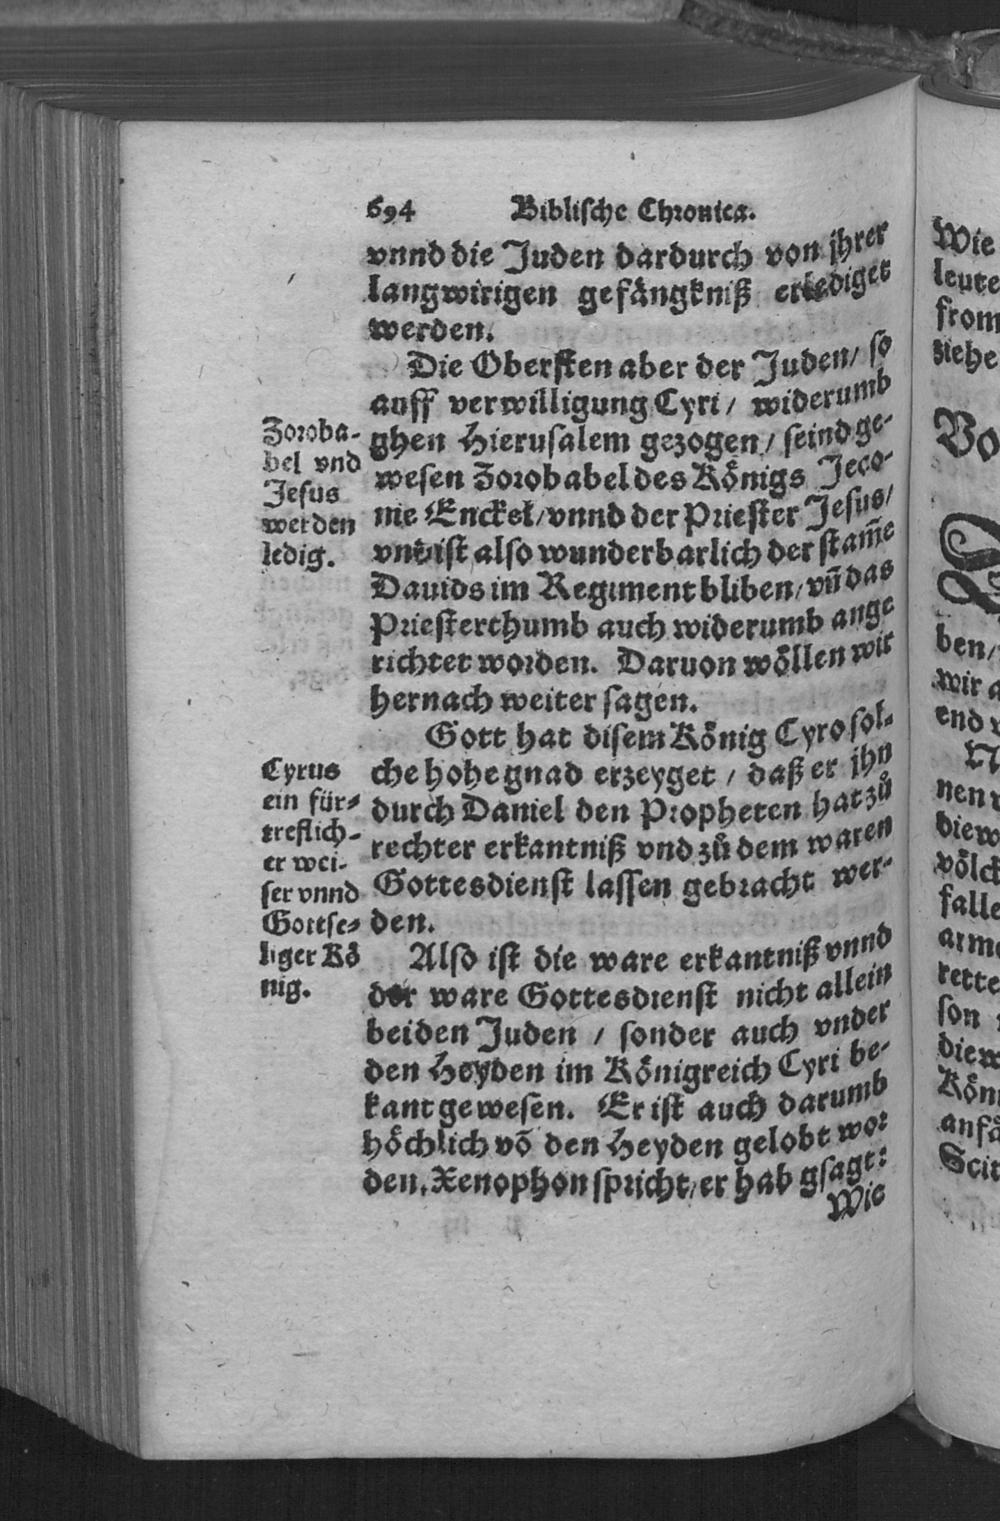 694 Biblische Chronica.
vnnd die Juden dardurch von jhrer
langwirigen gefängkniß erlediget
werden.
Die Obersten aber der Juden/ so
auff verwilligung Cyri/ widerumb
ghen Hierusalem gezogen/ seind ge-
wesen Zorobabel des Königs Jeco-
nie Enckel/ vnnd der Priester Jesus/
vnd ist also wunderbarlich der stam̃e
Dauids im Regiment bliben/ vñ das
Priesterthumb auch widerumb ange
richtet worden. Daruon wöllen wir
hernach weiter sagen.
Gott hat disem König Cyro sol-
che hohe gnad erzeyget / daß er jhn
durch Daniel den Propheten hat zů
rechter erkantniß vnd zů dem waren
Gottesdienst lassen gebracht wer-
den.
Also ist die ware erkantniß vnnd
der ware Gottesdienst nicht allein
bei den Juden / sonder auch vnder
den Heyden im Königreich Cyri be-
kant gewesen. Er ist auch darumb
höchlich võ den Heyden gelobt wor
den. Xenophon spricht/ er hab gsagt:
Wie
Zoroba-
bel vnd
Jesus
werden
ledig.
Cyrus
ein für-
treflich-
er wei-
ser vnnd
Gottse-
liger Kö
nig.
Wie
leute
from
ziehe
Vo
ben/
wir a
end v
N
nen v
die w
völck
falle
arme
rette
son
die w
Köni
anfä
Scit